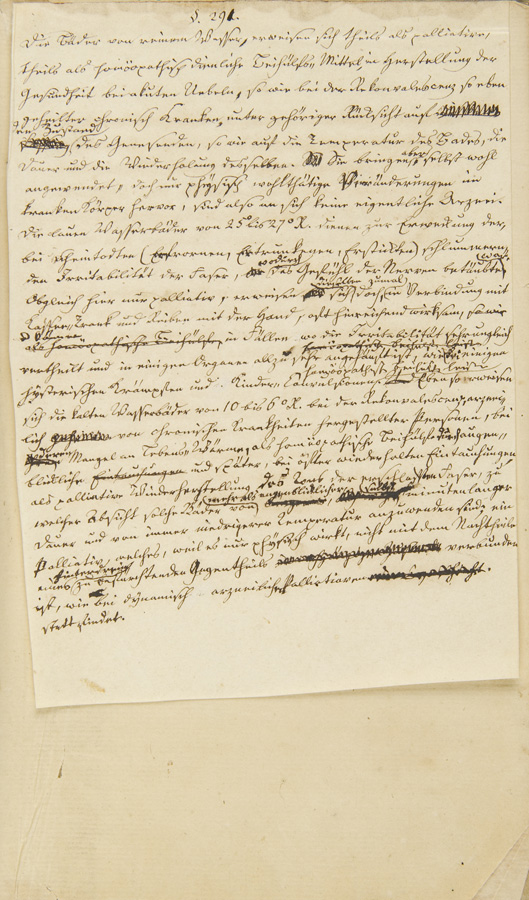 §. 291.
Die Bäder von reinem Wasser, erweisen sich theils als palliative,
theils als homöopathisch dienliche Beihülfs-Mittel in Herstellung der
Gesundheit bei akuten Uebeln, so wie bei der Rekonvaleszenz so eben
geheilter chronisch Kranken, unter gehöriger Rücksicht auf
den Zustand
des Genesenden, so wie auf die Temperatur des Bades, die
Dauer und die Wiederholung desselben. Sie bringen aber, selbst wohl
angewendet, doch nur physisch wohlthätige Veränderungen im
kranken Körper hervor, sind also an sich keine eigentliche Arznei.
Die lauen Wasserbäder von 25 bis 27° R. dienen zur Erweckung der,
bei Scheintodten (Erfrornen, Ertrunkenen, Erstickten) schlummern-
den Irritabilität der Faser, wodurch das Gefühl der Nerven betäubt war
Obgleich hier nur palliativ, erweisen sie sich doch zumal in Verbindung mit
Kaffee-Trank und Reiben mit der Hand, oft hinreichend wirksam, so wie
als homöopathische Beihülfe in Fällen, wo die Irritabilität sehr ungleich
vertheilt und in einigen Organen allzu sehr angehäuft ist, wie bei einigen
hysterischen Krämpfen und Kinder-Convulsionen
homöopathisch
Ebenso erweisen
sich die kalten Wasserbäder von 10 bis 6° R. bei der Rekonvaleszenz arznei-
lich von chronischen Krankheiten hergestellter Personen, bei
Mangel an Lebens-Wärme, als homöopathische Beihülfe
bliklicher Eintauchungen und später, bei öfter wiederholten Eintauchungen
als palliative Wiederherstellung des Tons der erschlafften Faser, zu
welcher Absicht solche Bäder von mehr als augenblicklicher, selbst
minutenlanger
Dauer und von immer niedrigerer Temperatur anzuwenden sind, ein
Palliativ welches, weil es nur physisch wirkt, nicht mit dem Nachtheile
eines hinterdrein zu befürchtenden Gegentheils verbunden
ist, wie bei dynamisch arzneilichen Palliativen
statt findet.